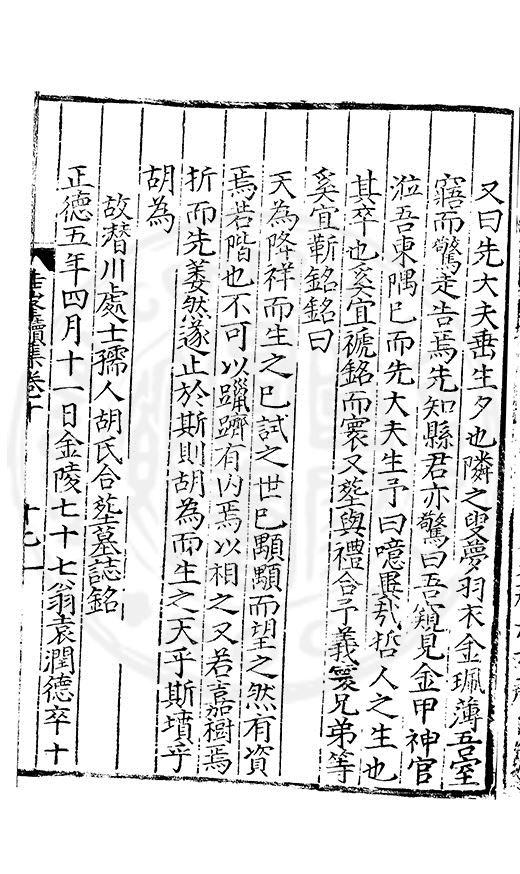 又曰先大夫垂生夕也隣之叟夢羽衣金珮薄吾室
寤而驚走告焉先知縣君亦驚曰吾窺見金甲神官
涖吾東隅巳而先大夫生予曰噫異哉哲人之生也
其卒也奚宜禠銘而寰又塟與禮合予義寰兄弟等
奚宜靳銘銘曰
天為降祥而生之巳試之世巳顒顒而望之然有資
焉若階也不可以躐躋有内焉以相之又若嘉樹焉
折而先萎然遂止於斯則胡為而生之天乎斯墳乎
胡為
故潛川處士孺人胡氏合塟墓誌銘
正德五年四月十一日金陵七十七翁袁潤德卒十
峯續集卷十